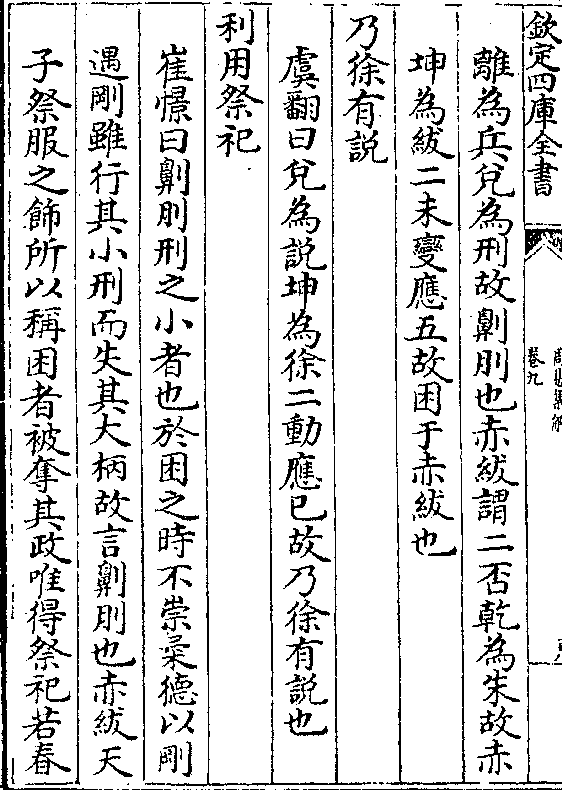 欽定四庫全書
卷九
離為兵兌為刑故劓刖也赤紱謂二否乾為朱故赤
坤為紱二未變應五故困于赤紱也
乃徐有説
虞翻曰兌為説坤為徐二動應已故乃徐有説也
利用祭祀
崔憬曰劓刖刑之小者也於困之時不崇柔德以剛
遇剛雖行其小刑而失其大柄故言劓刖也赤紱天
子祭服之飾所以稱困者被奪其政唯得祭祀若春